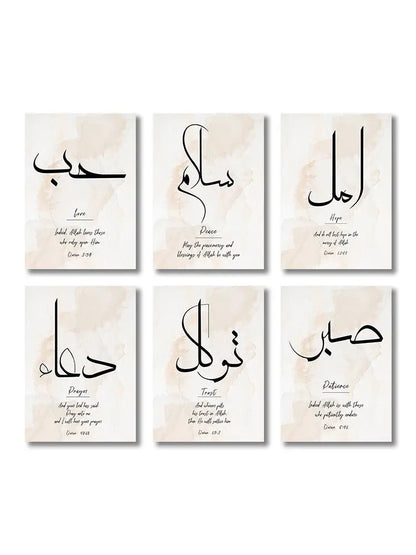 حب
Love
Indeed, Allah loves those
who rely upon Him
Quran 3:159
سلام
Peace
May the peace mercy and
blessings of Allah be with you
امل
Hope
And do not lost hope in the
mercy of Allah
Quran
دعاء
Prayer
And your lord has said
Pray unto me
and I will hear your prayer
Quran
توكل
Trust
And whoever puts
his trust in Allah
then He will suffice him
Quran 65:3
صبر
Patience
Indeed Allah is with those
who patiently endure
Quran